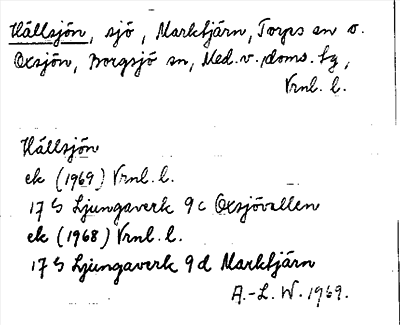 Hällsjön, sjö, Marktjärn, Torps sn o.
Oxsjön, Borgsjö sn, Med. v. doms. tg,
Vrnl. l.
Hällsjön
ek (1969) Vrnl. l.
17 G Ljungaverk 9 c Oxsjövallen
ek (1968) Vrnl. l.
17 G Ljungaverk 9 d Marktjärn
A.-L. W. 1969.